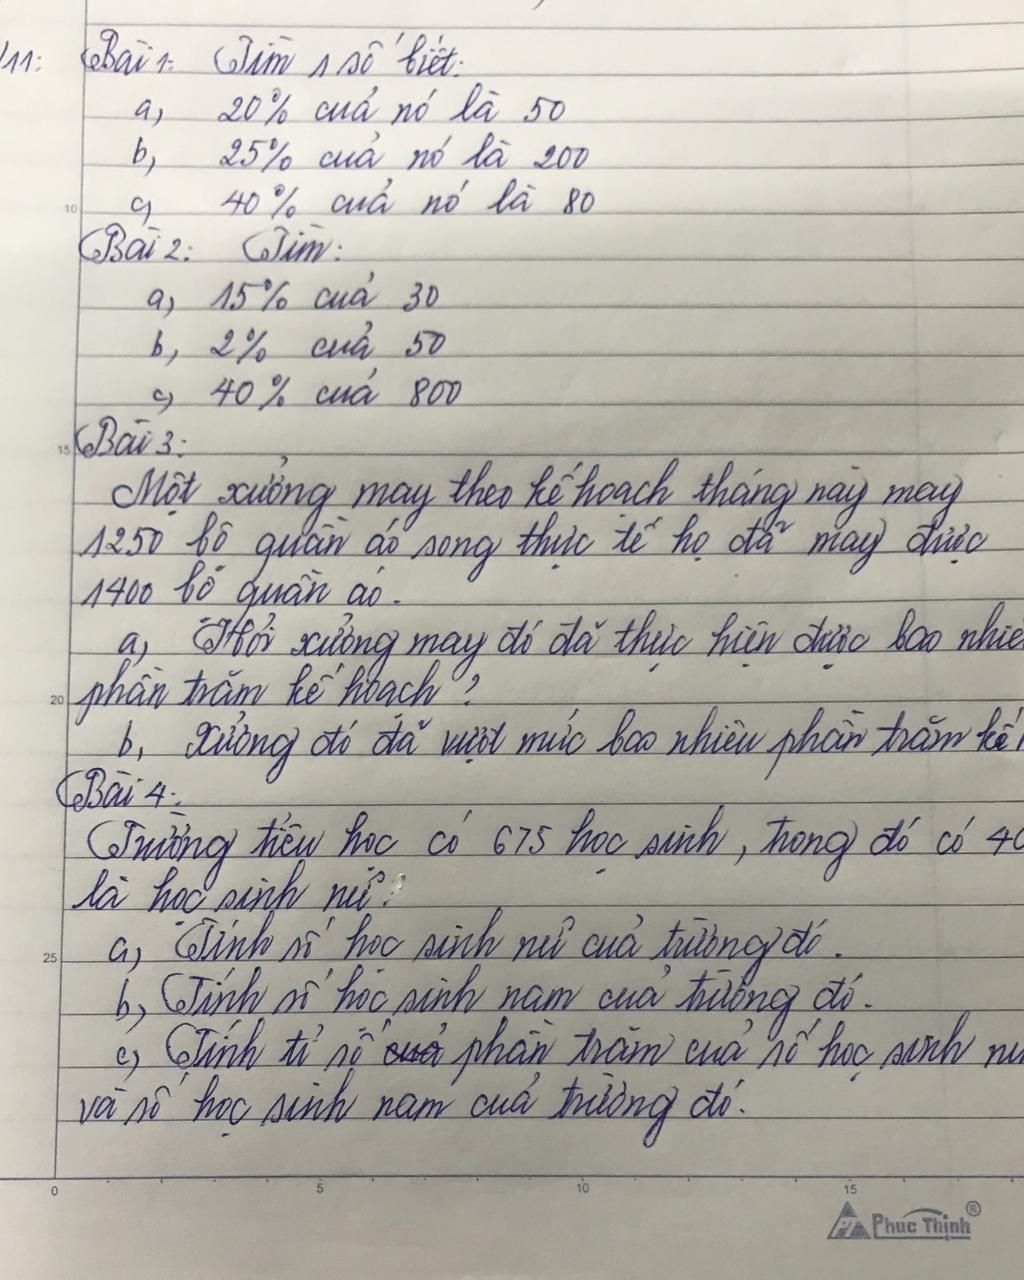 11:
Bài 1: Tìm 1 số biết:
a, 20% cuả nó là 50
b, 25% cuả nó là 200
c, 40% cuả nó là 80
10
Bài 2: Tìm:
a, 15% cuả 30
b, 2% cuả 50
c, 40% cuả 800
15
Bài 3:
Một xưởng may theo kế hoạch tháng này may
1250 bộ quần áo song thực tế họ đã may được
1400 bộ quần áo.
a, Hỏi xưởng may đó đã thực hiện được bao
20
phần trăm kế hoạch?
b, Xưởng đó đã vượt mức bao nhiêu phần trăm kế
Bài 4:
Trường tiểu học có 675 học sinh, trong đó có
là học sinh nữ.
25
a, Tính số học sinh nữ cuả trường đó.
b, Tính số học sinh nam cuả trường đó.
c, Tính tỉ số phần trăm cuả số học sinh
và số học sinh nam cuả trường đó.
0 5 10 15
Phuc Thịnh ®